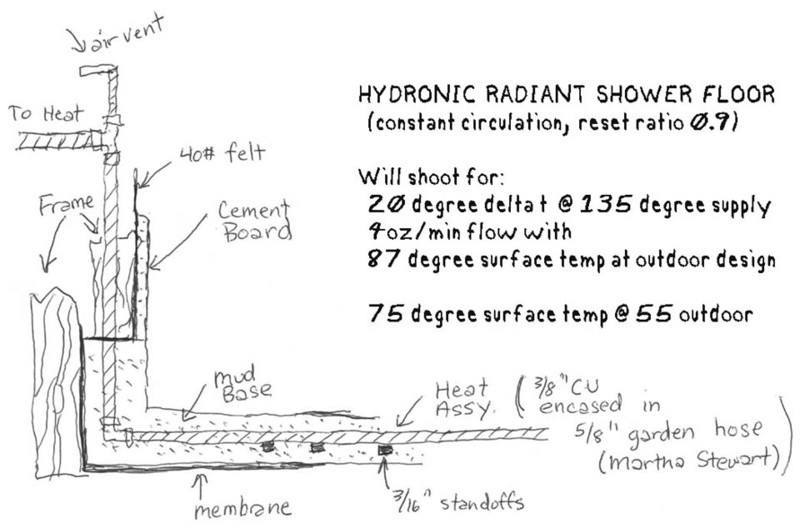 air vent
To Heat
40# felt
Frame
Cement
Board
HYDRONIC RADIANT SHOWER FLOOR
(constant circulation, reset ratio 0.9)
Will shoot for:
20 degree delta t @ 135 degree supply
4oz/min flow with
87 degree surface temp at outdoor design
75 degree surface temp @ 55 outdoor
mud
Base
Heat
Assy.
(3/8" CU
encased in
5/8" garden hose
(Martha Stewart))
membrane
3/16" standoffs